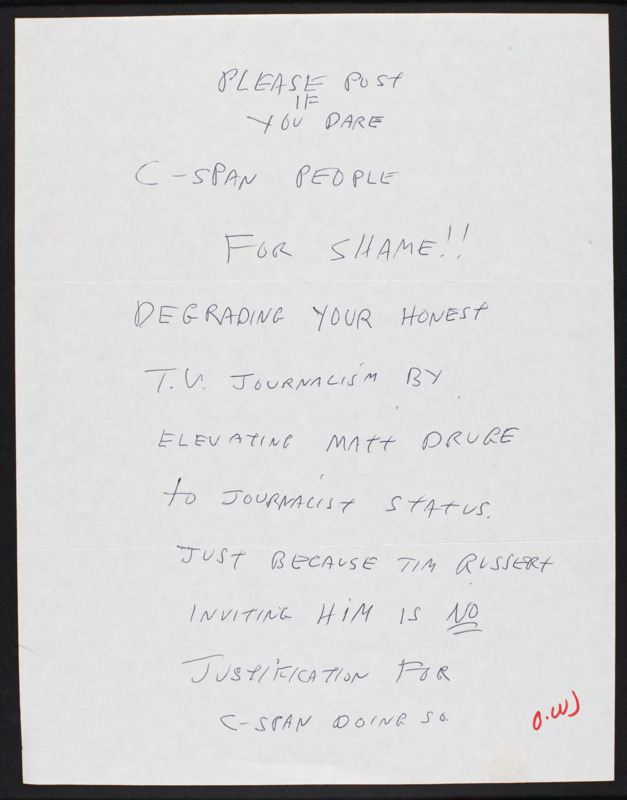 PLEASE POST
IF
YOU DARE
C-SPAN PEOPLE
FOR SHAME!!
DEGRADING YOUR HONEST
T.V. JOURNALISM BY
ELEVATING MATT DRUGE
TO JOURNALIST STATUS.
JUST BECAUSE TIM RUSSERT
INVITING HIM IS NO
JUSTIFICATION FOR
C-SPAN DOING SO.